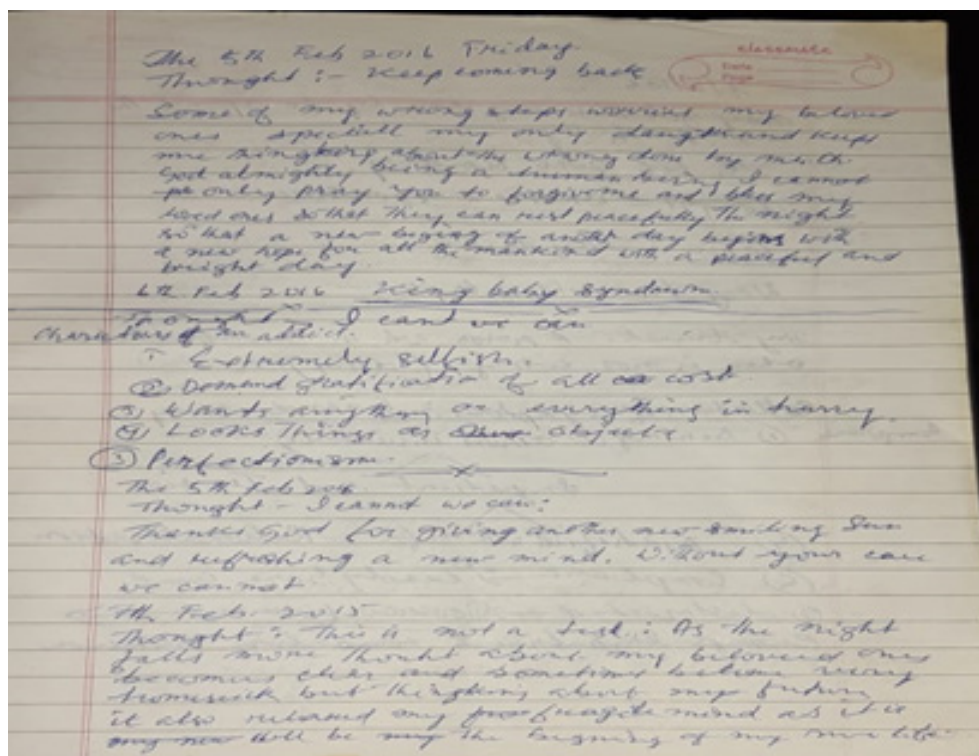 classmate
Date
Page
The 5th Feb 2016 Friday.
Thought :- Keep coming back
Some of my wrong steps worries my beloved
ones speciall my only daughter and keeps
me thingking about the wrong done by me. Oh
God almighty being a human being I cannot
only pray you to forgive me and bless my
loved ones so that they can rest peacefully the night
so that a new begining of another day begins with
a new hope for all the mankind with a peaceful and
bright day.
6th Feb 2016 King baby syndawm
Thought I cant we can
Characters of an addict.
1 Extremely selfish.
② Demand gratification of all cost
③ Wants anything or everything in hurry.
④ Looks things as objects
⑤ Perfectionism.
The 5th Feb 2016.
Thought - I cannot we can:
Thanks God for giving another new smiling Sun
and refreshing a new mind. Without your care
we cannot
7th Feb. 2015
Thought : This is not a test : As the night
falls more thought about my beloved ones
becomes clear and sometimes become very
homesick but thingking about my future
it also my fragile mind as it is
will be the begining of my new life.